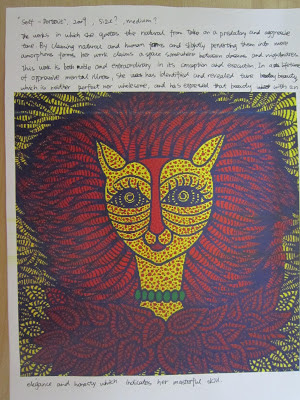 "Self - Portrait", 2009, SIZE?, medium?
The works in which she quotes the natural form take on a predatory and aggressive
tone. By claiming natural and human forms and slightly perverting them into more
amorphous forms her work claims a space somewhere between dreams and
This work is both subtle and extraordinary in its conception and execution. In a lifetime
of oppressive mental illness, she has identified and revealed rare beauty
which is neither perfect nor wholesome, and has expressed that beauty with an
elegance and honesty which indicates her masterful skill.